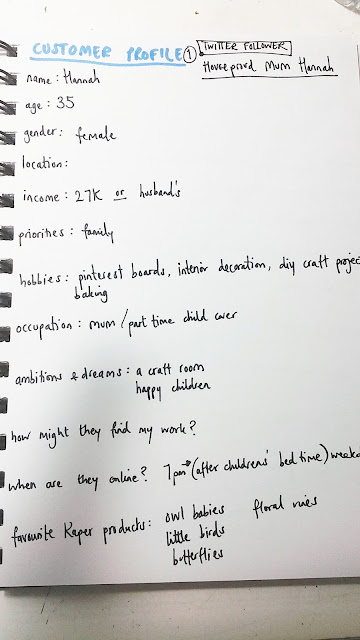 CUSTOMER PROFILE 1 TWITTER FOLLOWER
Houseproud Mum Hannah
name: Hannah
age: 35
gender: female
location:
income: 27K or husband's
priorities: family
hobbies: pinterest boards, interior decoration, diy craft projec
baking
occupation: mum / part time child carer
ambitions & dreams: a craft room
happy children
how might they find my work?
when are they online? 7pm → (after childrens' bed time)
favourite Kaper products: owl babies floral
little birds
butterflies